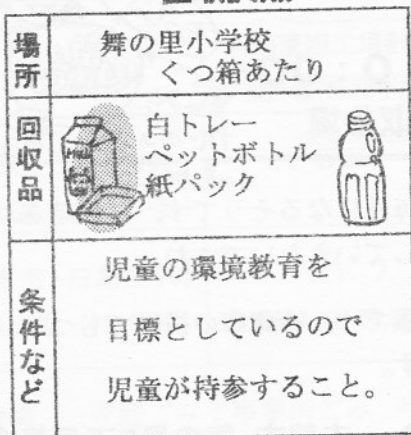 場所
舞の里小学校
くつ箱あたり
回収品
白トレー
ペットボトル
紙パック
条件など
児童の環境教育を
目標としているので
児童が持参すること。